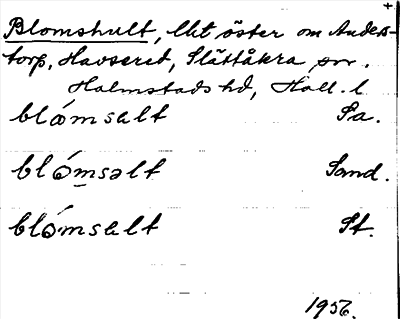 +
Blomshult, lht öster om Anders-
torp, Havseret, Slättåkra sn.
Halmstads hd, Hall. l.
blómsalt Sa.
blómsəlt Sand.
blómsalt St.
1956.